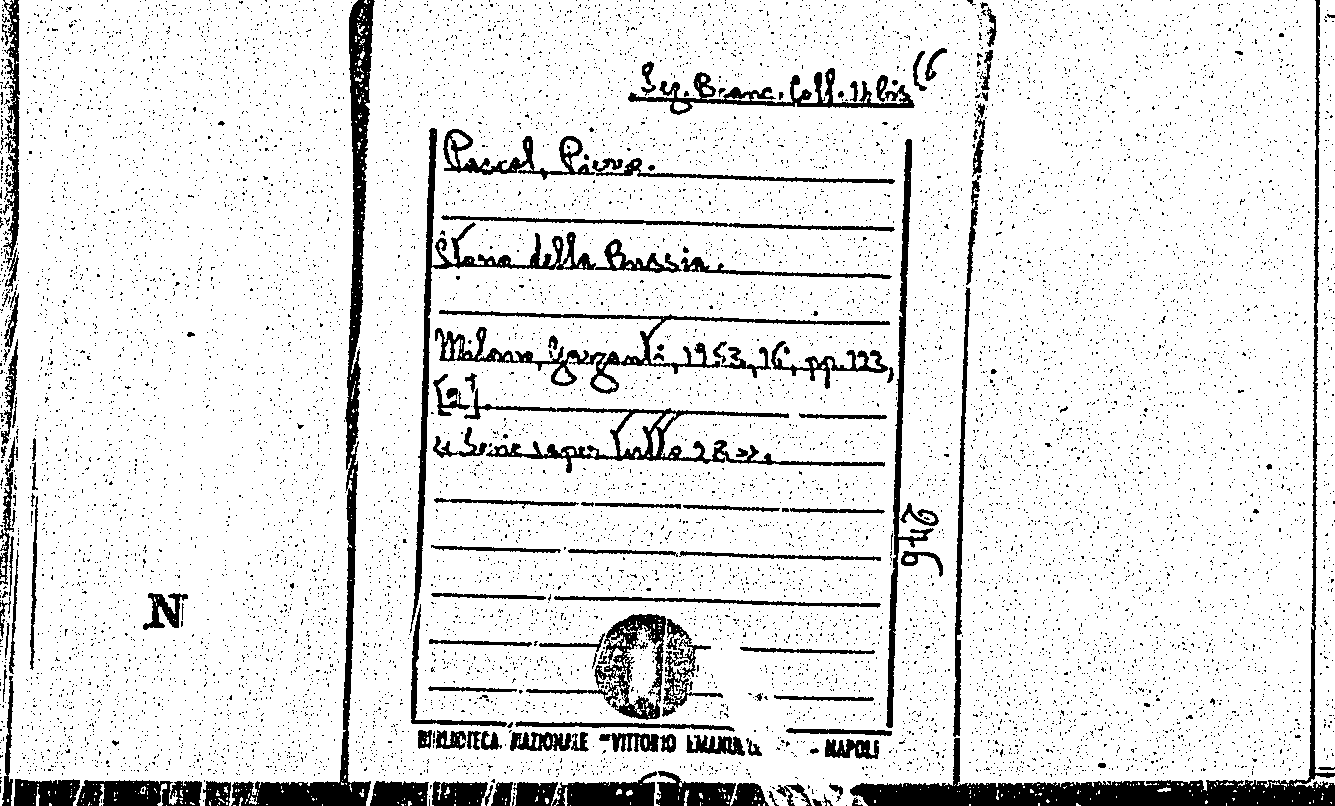 Sez. Branc. Coll. 14 bis 16
Pascal, Pierre.
Storia della Russia.
Milano, Garzanti, 1953, 16°, pp. 123,
[2].
« Serie saper tutto 28 ».
946
N
BIBLIOTECA NAZIONALE "VITTORIO - NAPOLI